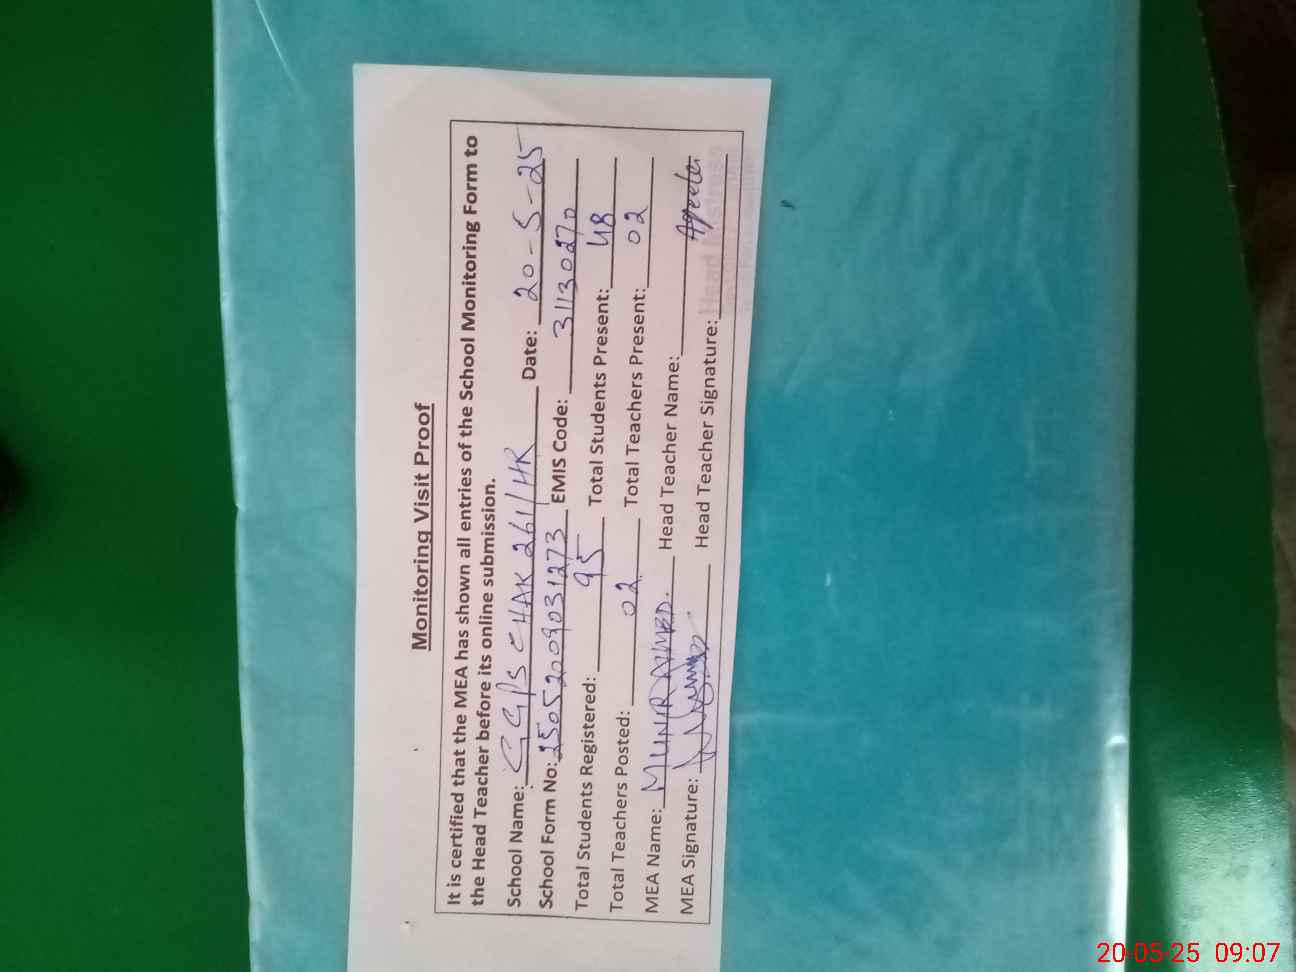 Monitoring Visit Proof
It is certified that the MEA has shown all entries of the School Monitoring Form to
the Head Teacher before its online submission.
School Name: GGPS CHAK 261/HR Date: 20-5-25
School Form No: 25052009031273 EMIS Code: 31130270
Total Students Registered: 95 Total Students Present: 48
Total Teachers Posted: 02 Total Teachers Present: 02
MEA Name: MUNIR AHMED. Head Teacher Name:
MEA Signature: Head Teacher Signature:
Head Mistress
20-05-25 09:07